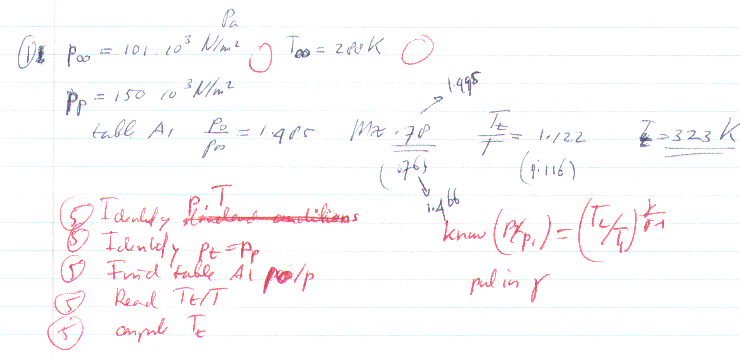 Pa
① p∞ = 101·10³ N/m² T∞ = 288K
1.495
Pp = 150 10³ N/m²
table A1 Po/p∞ = 1.485 M≈ .78 Tt/T = 1.122 = 323 K
(.76) (1.116)
1.466
P, T
⑤ Identify standard conditions
⑤ Identify Pt = Pp
⑤ Find table A1 po/p
⑤ Read Tt/T
⑤ compute Tt
know (P/p₁) = (Tt/T₁)
put in γ